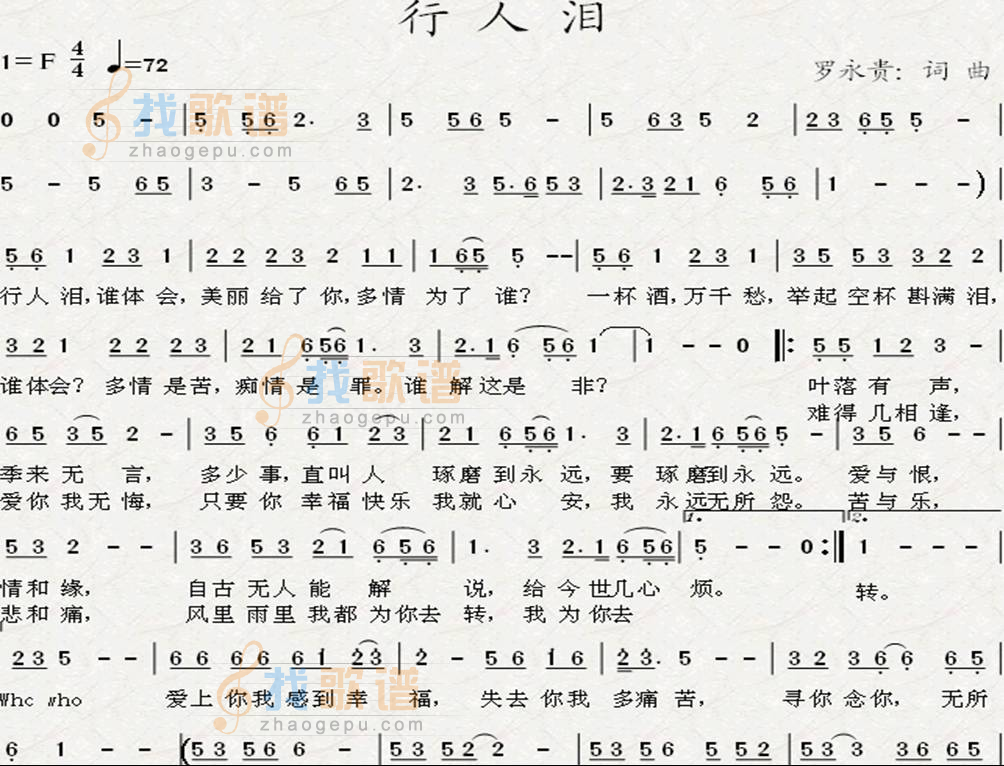 行人泪
1=F 4/4 ♩=72
罗永贵: 词 曲
找歌谱
zhaogepu.com
0 0 5 - | 5 56 2· 3 | 5 56 5 - | 5 63 5 2 | 23 65 5 - |
5 - 5 65 | 3 - 5 65 | 2· 3 5·653 | 2·321 6 56 | 1 - - -) |
56 1 23 1 | 22 23 2 11 | 1 65 5 -- | 56 1 23 1 | 35 53 32 2 |
行人泪,谁体会,美丽给了你,多情为了谁? 一杯酒,万千愁,举起空杯斟满泪,
32 1 22 23 | 21 656 1· 3 | 2·1 6 56 1 | 1 - - 0 |: 55 12 3 - |
谁体会?多情是苦,痴情是罪。谁解这是非? 叶落有声,
难得几相逢,
找歌谱
zhaogepu.com
65 35 2 - | 35 6 61 23 | 21 656 1· 3 | 2·1 656 5 - | 35 6 -- |
季来无言, 多少事,直叫人 琢磨到永远,要 琢磨到永远。爱与恨,
爱你我无悔, 只要你幸福快乐 我就心安,我 永远无所怨。苦与乐,
53 2 - - | 36 53 21 656 | 1· 3 2·1 656 | 1. 5 - - 0 :| 2. 1 - - - |
情和缘, 自古无人能解说,给今世几心烦。 转。
悲和痛, 风里雨里我都为你去转,我为你去
23 5 - - | 66 66 61 23 | 2 - 56 16 | 23 5 - - | 32 36 6 56 |
Who who 爱上你我感到幸福,失去你我多痛苦,寻你念你,无所
找歌谱
zhaogepu.com
6 1 - - | (53 56 6 - | 53 52 2 - | 51 56 52 2 | 53 3 36 65 |